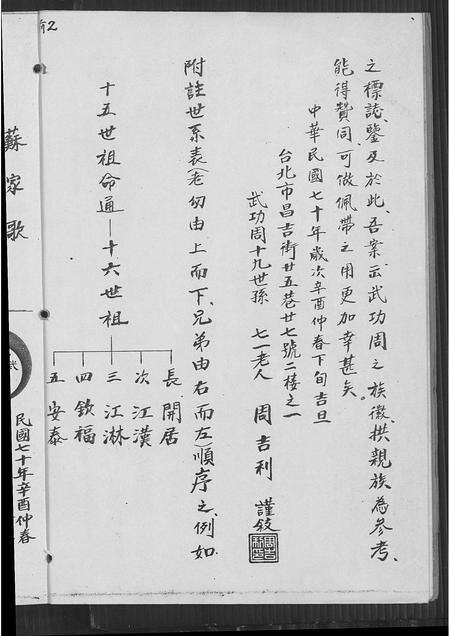 之標誌鑒及於此、吾案云武功周之族徽、拱親族為參考、
能得贊同、可做佩帶之用更加幸甚矣。
中華民國七十年歲次辛酉仲春下旬吉旦
台北市昌吉街廿五巷廿七號二樓之一
武功周十九世孫 七一老人 周吉利 謹敘
附註世系表(老幼由上而下、兄弟由右而左)順序之、例如
十五世祖命通—十六世祖
長 開居
次 江漢
三 江淋
四 欽福
五 安泰
蘇家歌
民國七十年辛酉仲春